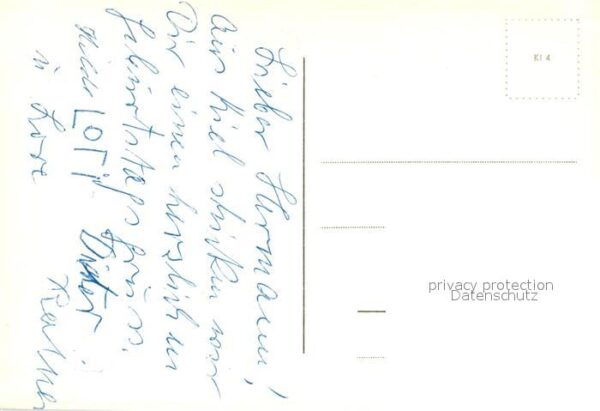 Lieber Hermann!
Aus Kiel schicken wir
Dir einen herzlichen
Geburtstagsgruss.
Hilde LOTTI Dieter
u. Lore
KI 4
privacy protection
Datenschutz